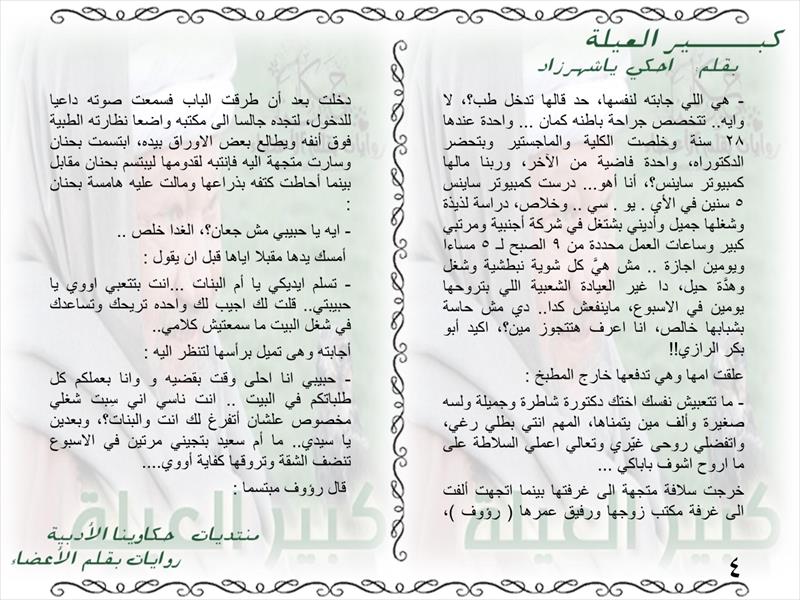 كبـــــــير العيلة
بقلم احكي ياشهرزاد
- هي اللي جابته لنفسها، حد قالها تدخل طب؟، لا
وايه.. تتخصص جراحة باطنه كمان ... واحدة عندها
٢٨ سنة وخلصت الكلية والماجستير وبتحضر
الدكتوراه، واحدة فاضية من الآخر، وربنا مالها
كمبيوتر ساينس؟، أنا أهو... درست كمبيوتر ساينس
٥ سنين في الأي . يو . سي .. وخلاص، دراسة لذيذة
وشغلها جميل وأديني بشتغل في شركة أجنبية ومرتبي
كبير وساعات العمل محددة من ٩ الصبح لـ ٥ مساءا
ويومين اجازة .. مش هيَّ كل شوية نبطشية وشغل
وهدَّة حيل، دا غير العيادة الشعبية اللي بتروحها
يومين في الاسبوع، ماينفعش كدا.. دي مش حاسة
بشبابها خالص، انا اعرف هتتجوز مين؟، اكيد أبو
بكر الرازي!!
علقت امها وهي تدفعها خارج المطبخ :
- ما تتعبيش نفسك اختك دكتورة شاطرة وجميلة ولسه
صغيرة وألف مين يتمناها، المهم انتي بطلي رغي،
واتفضلي روحى غيّري وتعالي اعملي السلاطة على
ما اروح اشوف باباكي ...
خرجت سلافة متجهة الى غرفتها بينما اتجهت ألفت
الى غرفة مكتب زوجها ورفيق عمرها ( رؤوف )،
دخلت بعد أن طرقت الباب فسمعت صوته داعيا
للدخول، لتجده جالسا الى مكتبه واضعا نظارته الطبية
فوق أنفه ويطالع بعض الاوراق بيده، ابتسمت بحنان
وسارت متجهة اليه فإنتبه لقدومها ليبتسم بحنان مقابل
بينما أحاطت كتفه بذراعها ومالت عليه هامسة بحنان
:
- ايه يا حبيبي مش جعان؟، الغدا خلص ..
أمسك يدها مقبلا اياها قبل ان يقول :
- تسلم ايديكي يا أم البنات ...انت بتتعبي اووي يا
حبيبتي.. قلت لك اجيب لك واحده تريحك وتساعدك
في شغل البيت ما سمعتيش كلامي..
أجابته وهى تميل برأسها لتنظر اليه :
- حبيبي انا احلى وقت بقضيه و وانا بعملكم كل
طلباتكم في البيت .. انت ناسي اني سِبت شغلي
مخصوص علشان أتفرغ لك انت والبنات؟، وبعدين
يا سيدي.. ما أم سعيد بتجيني مرتين في الاسبوع
تنضف الشقة وتروقها كفاية أووي....
قال رؤوف مبتسما :
كبير العيلة
كبير العيلة
منتديات حكاوينا الأدبية
روايات بقلم الأعضاء
٤